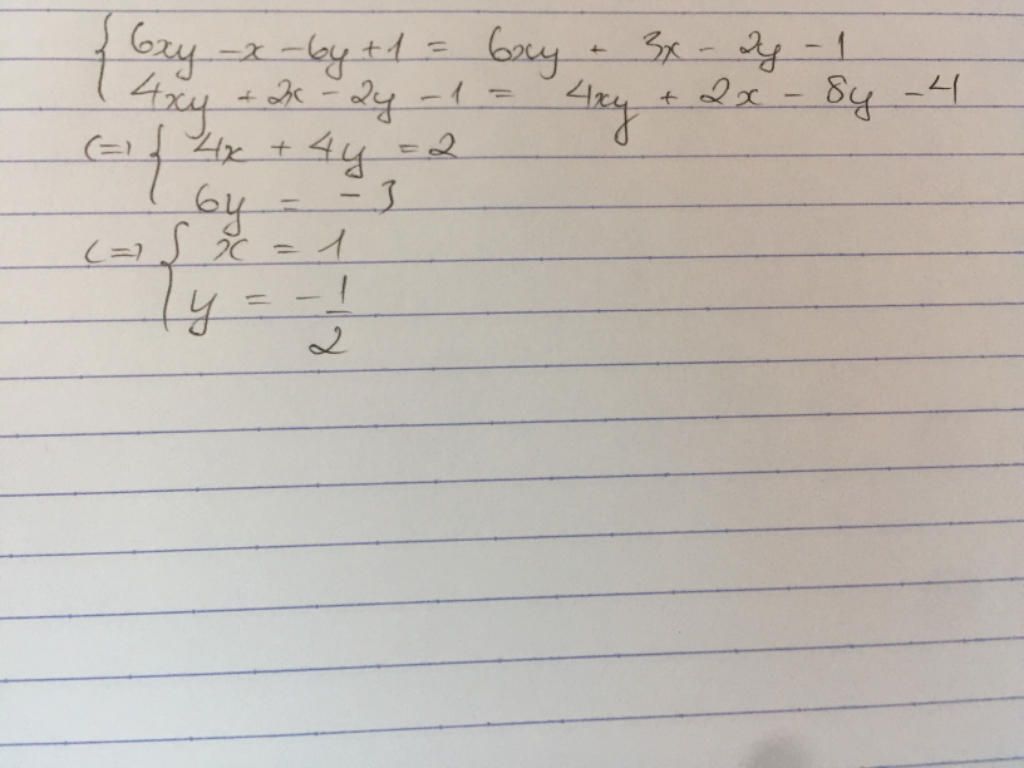 { 6xy - x - 6y + 1 = 6xy + 3x - 2y - 1
4xy + 2x - 2y - 1 = 4xy + 2x - 8y - 4
(=) { 4x + 4y = 2
6y = -3
(=) { x = 1
y = -1/2